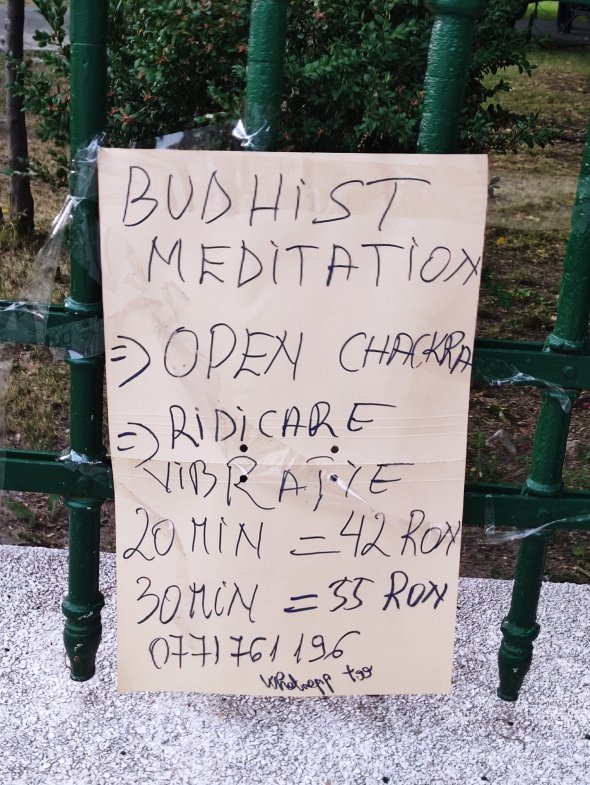 BUDHiST
MEDiTATiON
=> OPEN CHACKRA
=> RiDiCARE
ViBRAŢiE
20 MiN = 42 RON
30 MiN = 55 RON
0771761196
Whatsapp too